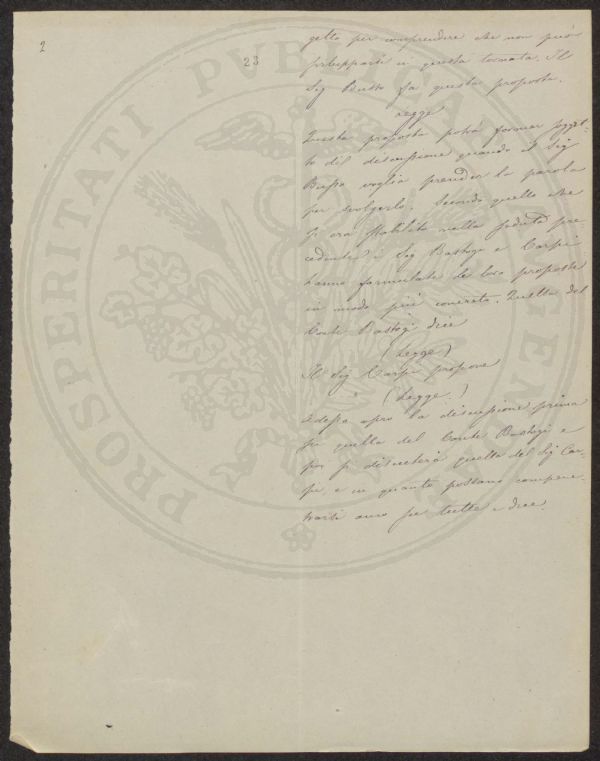 2
23
getto per comprendere che non può
svilupparsi in questa tornata. Il
Sig Busso fa questa proposta.
Legge
Questa proposta potrà formar sogget-
to di discussione quando il Sig
Busso voglia prender la parola
per svolgerla. Secondo quello che
si era stabilito nella seduta pre
cedente i Sig Bastogi e Carpi
hanno formulate le loro proposte
in modo più concreto. Quella del
Conte Bastogi dice
(Legge)
Il Sig Carpi propone
(Legge.)
Adesso apro la discussione prima
su quella del Conte Bastogi e
poi si discuterà quella del Sig Car
pi, e in quanto possano compene
trarsi anco su tutte e due.
PROSPERITATI PVBLICAE AVGENDAE